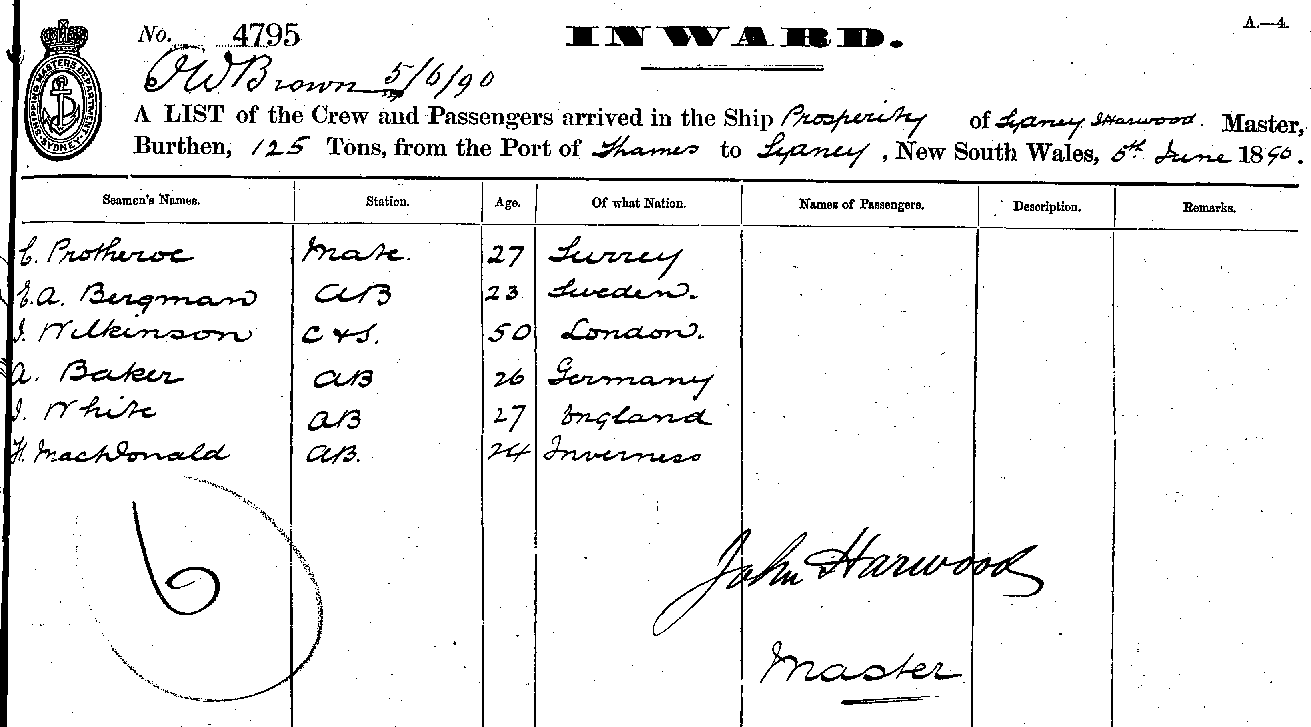 A.—4.
No. 4795
INWARD.
SHIPPING MASTERS DEPARTMENT SYDNEY
JW Brown 5/6/90
A LIST of the Crew and Passengers arrived in the Ship Prosperity of Sydney J Harwood. Master,
Burthen, 125 Tons, from the Port of Thames to Sydney, New South Wales, 5th June 1890.
Seamen's Names. Station. Age. Of what Nation. Names of Passengers. Description. Remarks.
C. Protheroe Mate. 27 Surrey
E.A. Bergman AB 23 Sweden.
J. Wilkinson C & S. 50 London.
A. Baker AB 26 Germany
J. White AB 27 England
H. MacDonald AB. 24 Inverness
6
John Harwood
Master